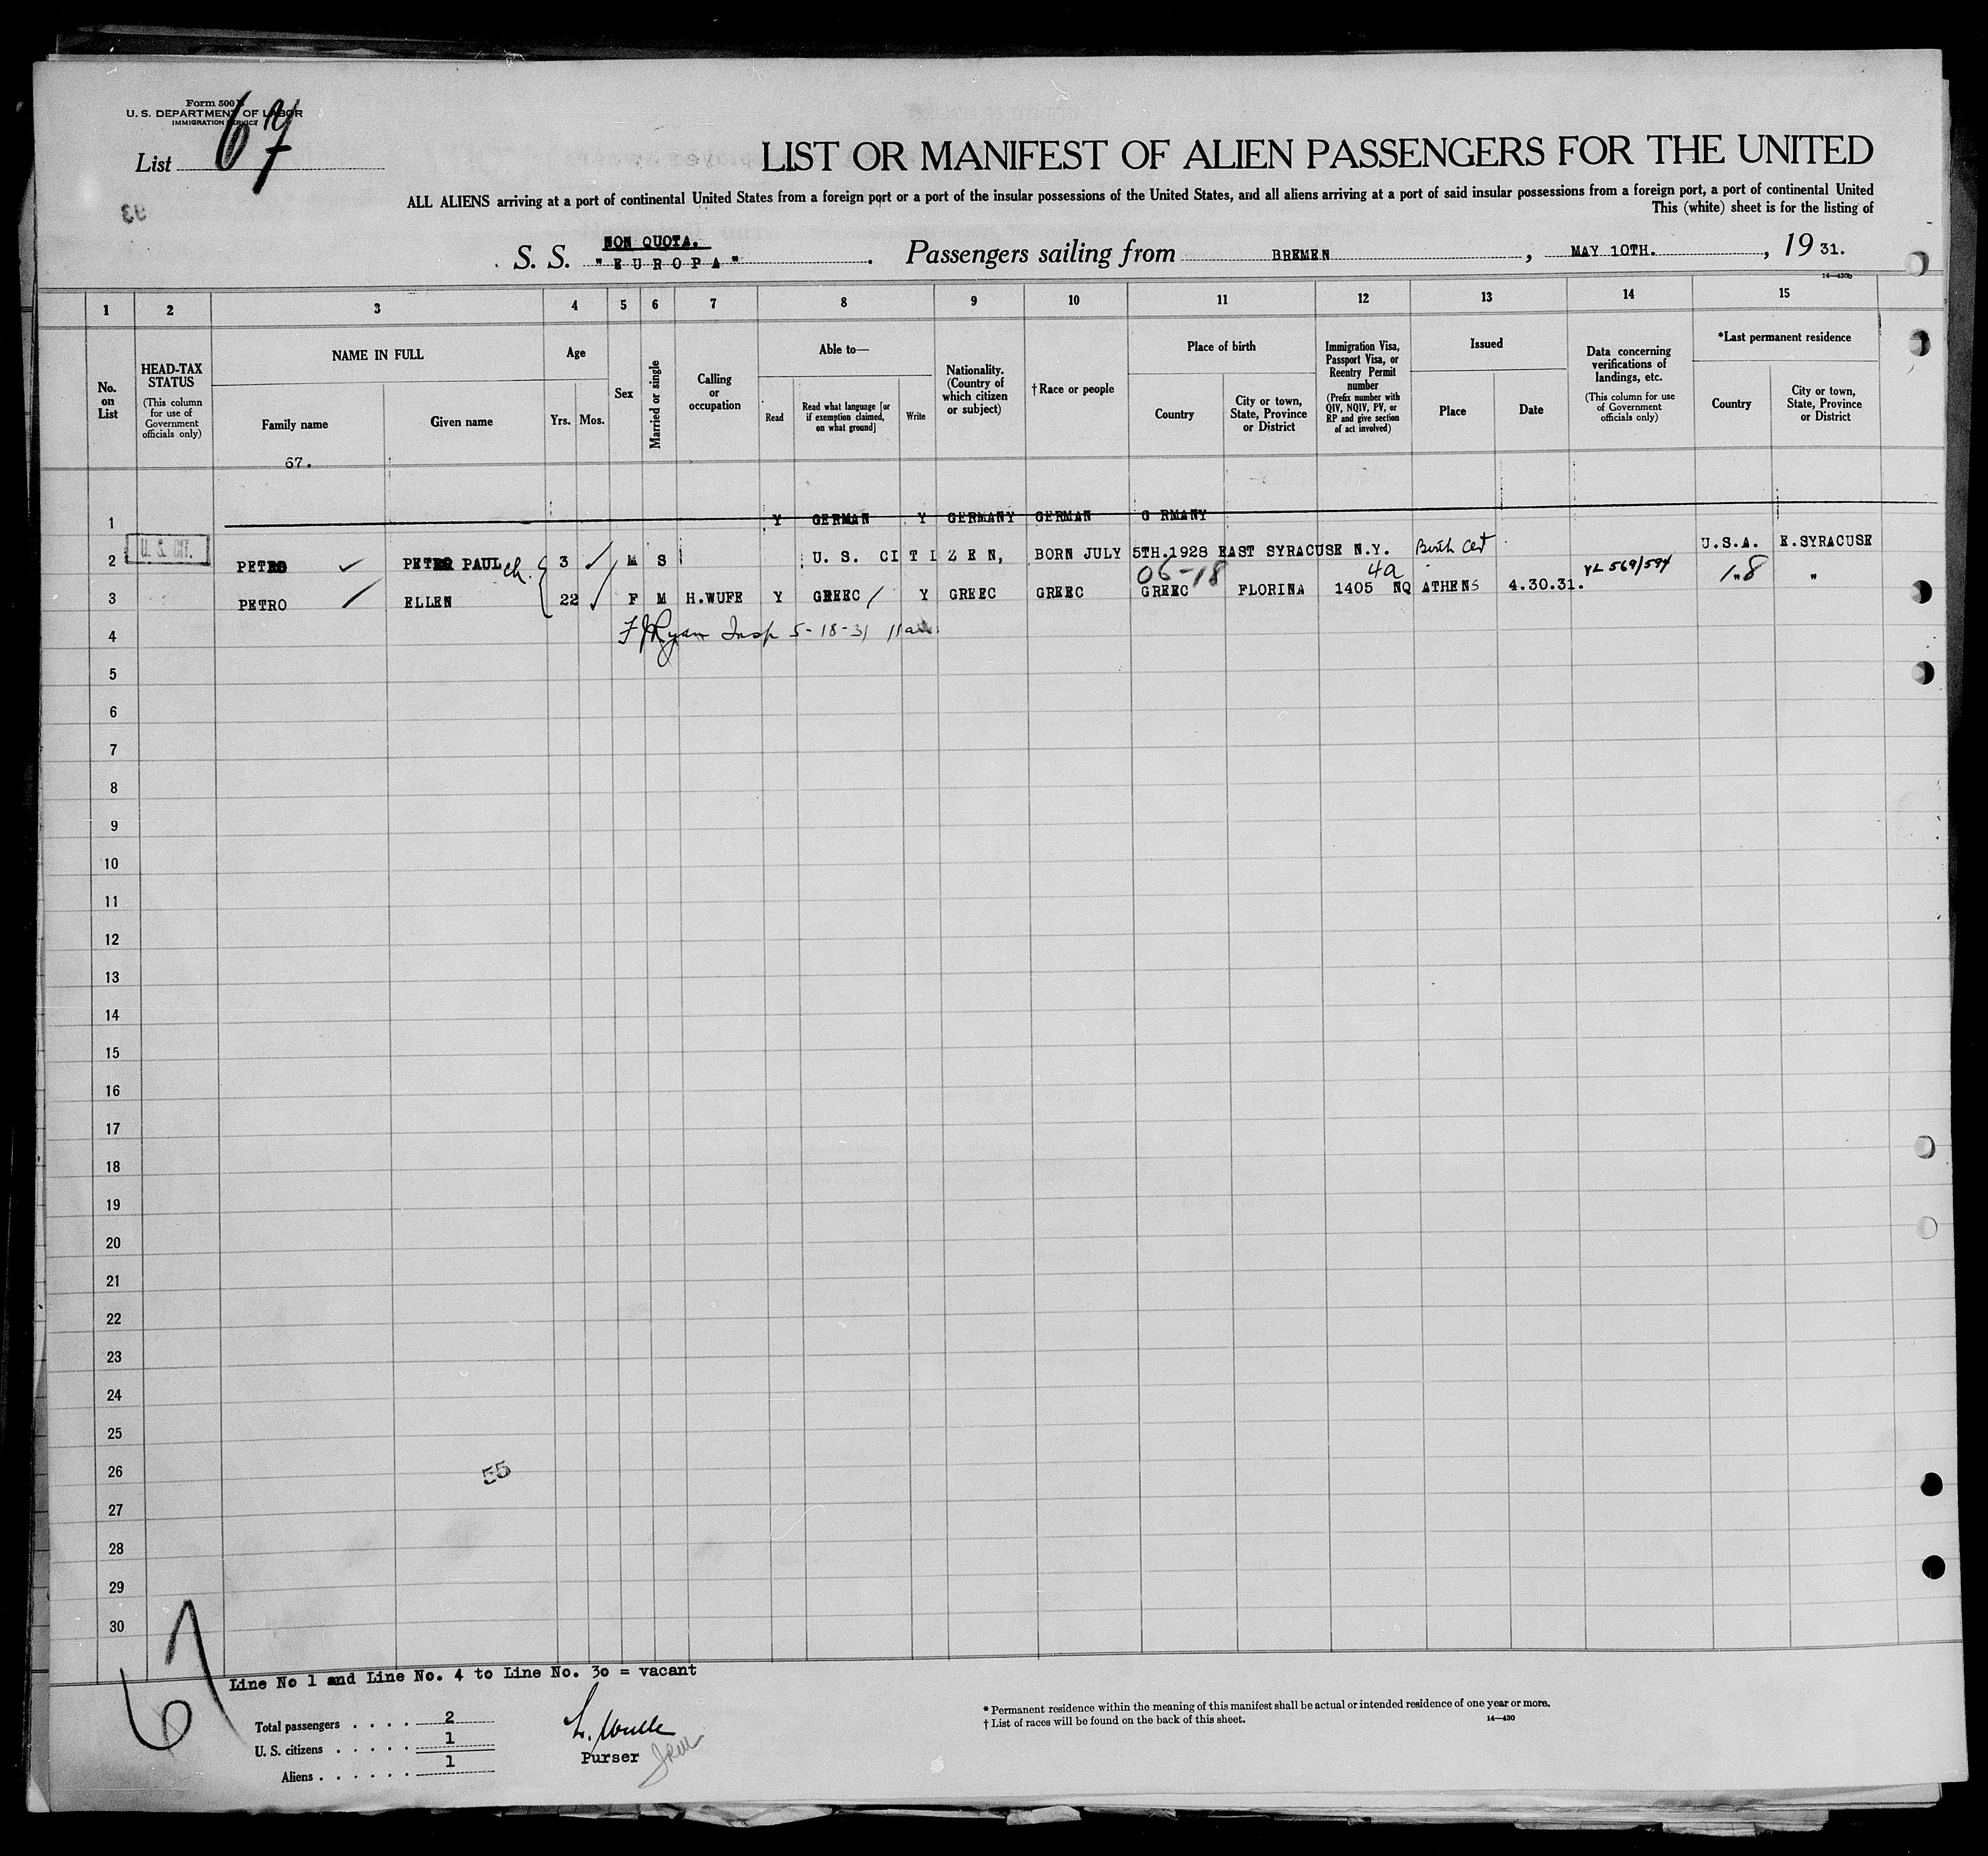 Form 500
U. S. DEPARTMENT OF LABOR
IMMIGRATION SERVICE
List 67
LIST OR MANIFEST OF ALIEN PASSENGERS FOR THE UNITED
ALL ALIENS arriving at a port of continental United States from a foreign port or a port of the insular possessions of the United States, and all aliens arriving at a port of said insular possessions from a foreign port, a port of continental United
This (white) sheet is for the listing of
93
NON QUOTA.
S. S. "EUROPA". Passengers sailing from BREMEN, MAY 10TH., 1931.
14—430b
1 2 3 4 5 6 7 8 9 10 11 12 13 14 15
No. on List
HEAD-TAX STATUS
(This column for use of Government officials only)
NAME IN FULL
Family name
Given name
Age
Yrs. Mos.
Sex
Married or single
Calling or occupation
Able to—
Read
Read what language [or if exemption claimed, on what ground]
Write
Nationality. (Country of which citizen or subject)
†Race or people
Place of birth
Country
City or town, State, Province or District
Immigration Visa, Passport Visa, or Reentry Permit number
(Prefix number with QIV, NQIV, PV, or RP and give section of act involved)
Issued
Place
Date
Data concerning verifications of landings, etc.
(This column for use of Government officials only)
*Last permanent residence
Country
City or town, State, Province or District
67.
1 Y GERMAN Y GERMANY GERMAN G RMANY
2 U. S. CIT. PETRO PETRO PAUL ch. 3 M S U. S. CITIZEN, BORN JULY 5TH.1928 EAST SYRACUSE N.Y. Birth Cert U.S.A. E.SYRACUSE
06-18 4a VL 569/594 18
3 PETRO ELLEN 22 F M H.WUFE Y GREEC Y GREEC GREEC GREEC FLORINA 1405 NQ ATHENS 4.30.31. " "
4 F J Ryan Insp 5-18-31 11am
5
6
7
8
9
10
11
12
13
14
15
16
17
18
19
20
21
22
23
24
25
26
55
27
28
29
30
67
Line No 1 and Line No. 4 to Line No. 30 = vacant
Total passengers . . . . 2
U. S. citizens . . . . . 1
Aliens . . . . . . 1
Purser
* Permanent residence within the meaning of this manifest shall be actual or intended residence of one year or more.
† List of races will be found on the back of this sheet.
14—430